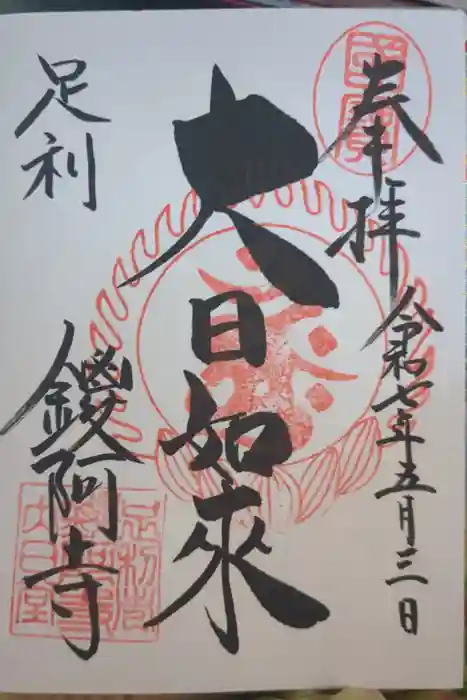 奉拝
令和七年五月三日
大日如來
足利
鑁阿寺
國寶